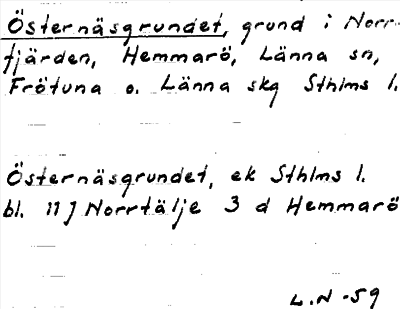 Östernäsgrundet, grund i Norr-
fjärden, Hemmarö, Länna sn,
Frötuna o. Länna skg Sthlms l.
Östernäsgrundet, ek Sthlms l.
bl. 11 J Norrtälje 3 d Hemmarö
L.N -59